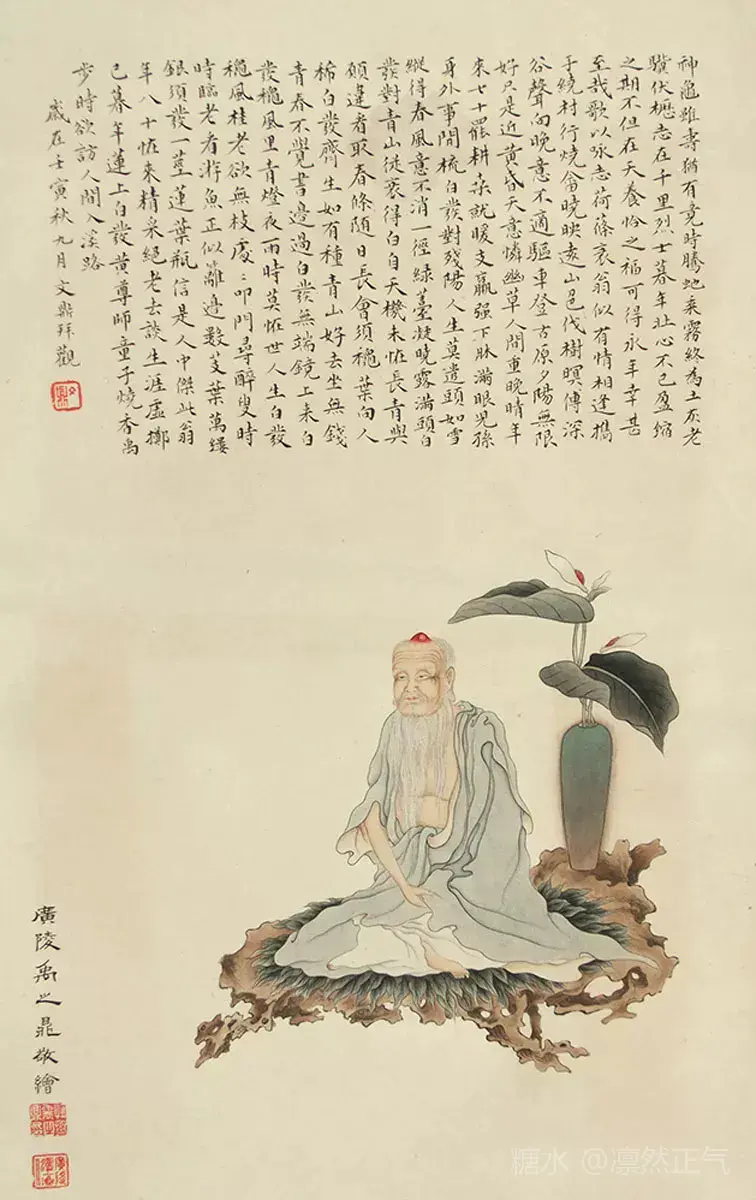 神龜雖壽猶有竟時騰蛇乘霧終為土灰老
驥伏櫪志在千里烈士暮年壯心不已盈縮
之期不但在天養怡之福可得永年幸甚
至哉歌以咏志荷蓧衰翁似有情相逢攜
子繞村行燒畬曉映遠山色伐樹暝傳深
谷聲向晚意不適驅車登古原夕陽無限
好只是近黃昏天意憐幽草人間重晚晴年
來七十罷耕桑就暖支羸强下牀滿眼兒孫
身外事閒梳白發對殘陽人生莫遣頭如雪
縱得春風意不消一徑綠蕓凝曉露滿頭白
發對青山徒衰得白自天機未恠長青與
願違看取春條隨日長會須穐葉向人
稀白發齊生如有種青山好去坐無錢
青春不覺書邊過白發無端鏡上來白
發穐風里青燈夜雨時莫恠世人生白發
穐風桂老欲無枝處〻叩門尋醉叟時
時臨老看游魚正似籬邊數芰葉萬縷
銀須發一莖蓮葉瓶信是人中傑此翁
年八十恠來精采絕老去談生涯虛擲
已暮年蓮上白發黃尊師童子燒香禹
步時欲訪人間入溪路
歲在壬寅秋九月文鼎拜觀
廣陵禹之鼎敬繪
糖水 @凛然正气